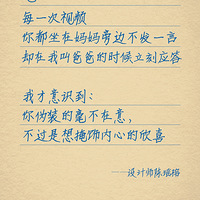 每一次视频
你都坐在妈妈旁边不发一言
却在我叫爸爸的时候立刻应答
我才意识到：
你伪装的毫不在意，
不过是想掩饰内心的欣喜
——设计师陈瑞梅